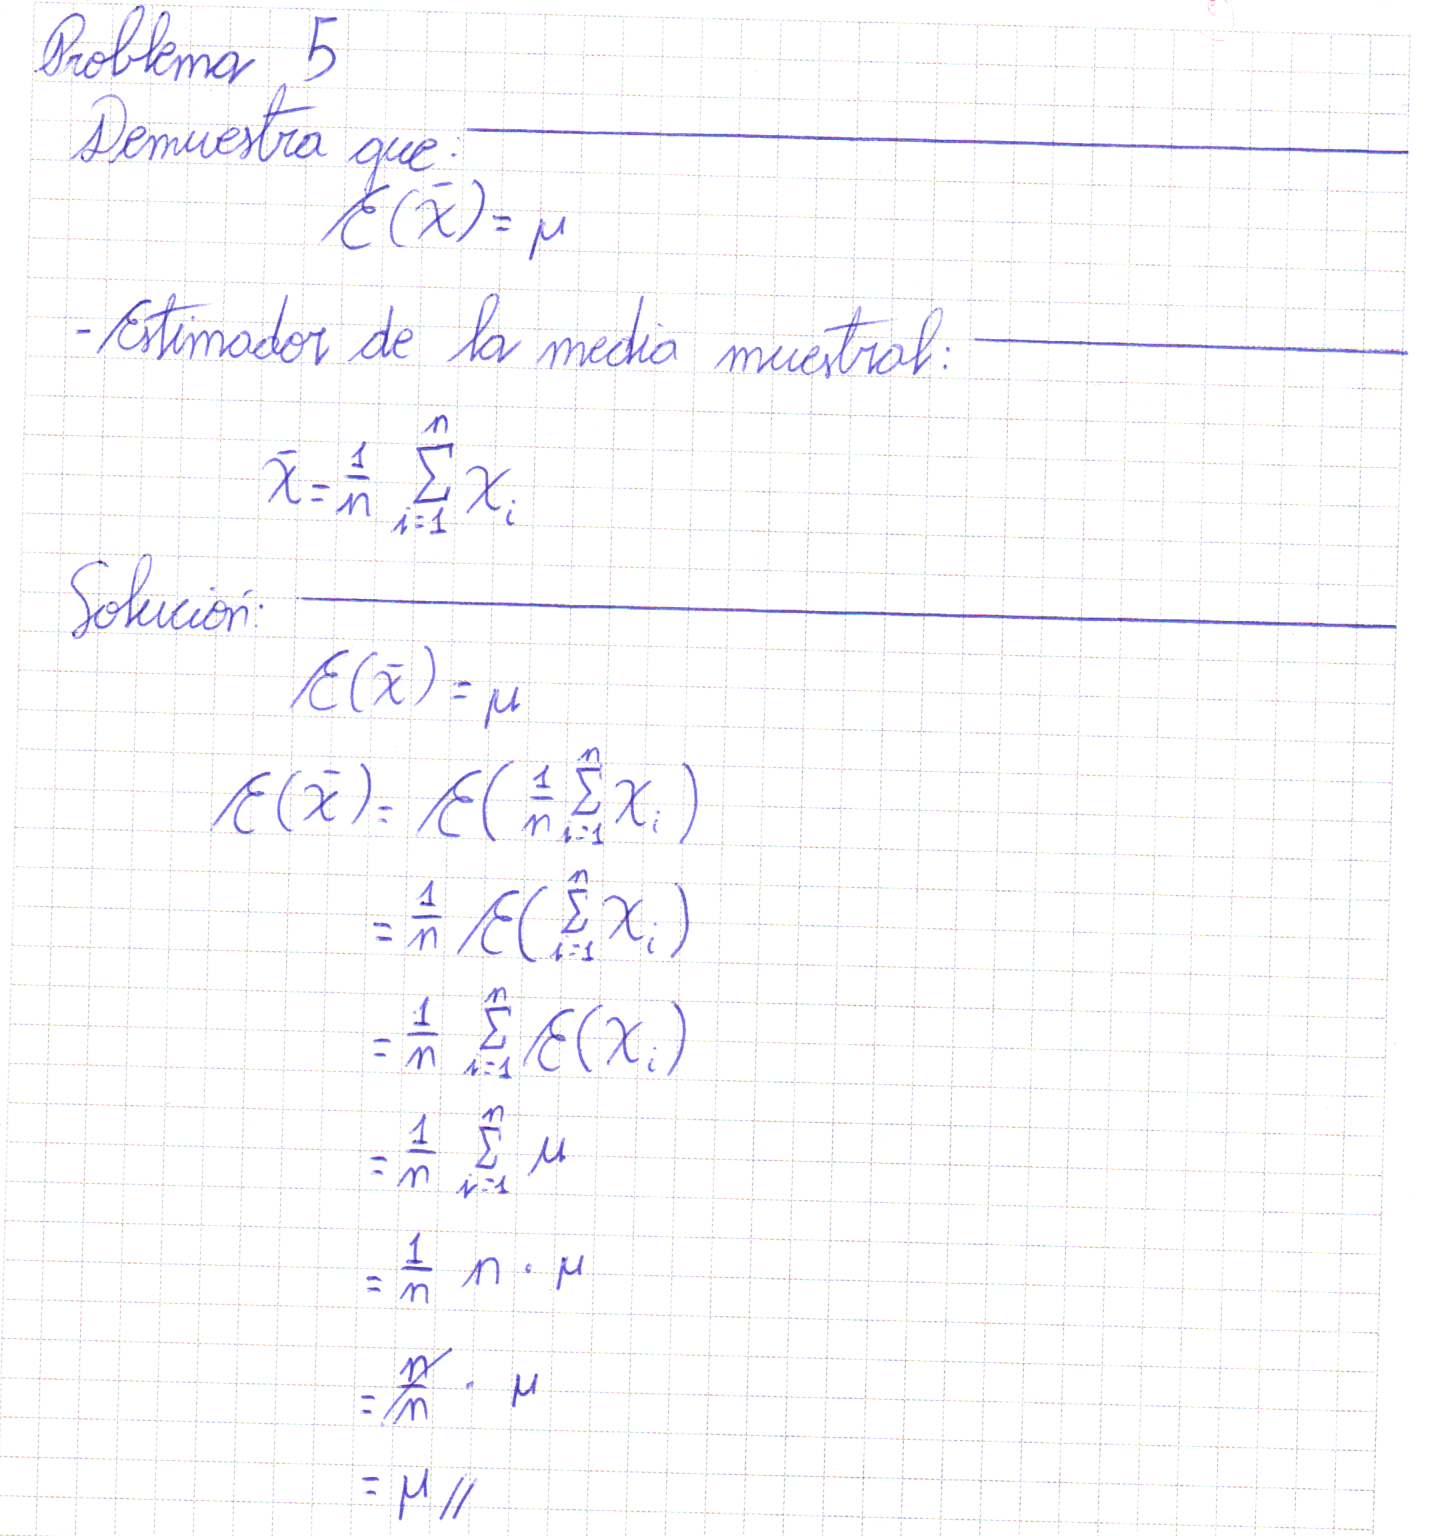 Problema 5
Demuestra que:
E(x̄) = μ
- Estimador de la media muestral:
x̄ = 1/n ∑_{i=1}^{n} x_i
Solución:
E(x̄) = μ
E(x̄) = E( 1/n ∑_{i=1}^{n} x_i )
= 1/n E( ∑_{i=1}^{n} x_i )
= 1/n ∑_{i=1}^{n} E( x_i )
= 1/n ∑_{i=1}^{n} μ
= 1/n n · μ
= n/n · μ
= μ //